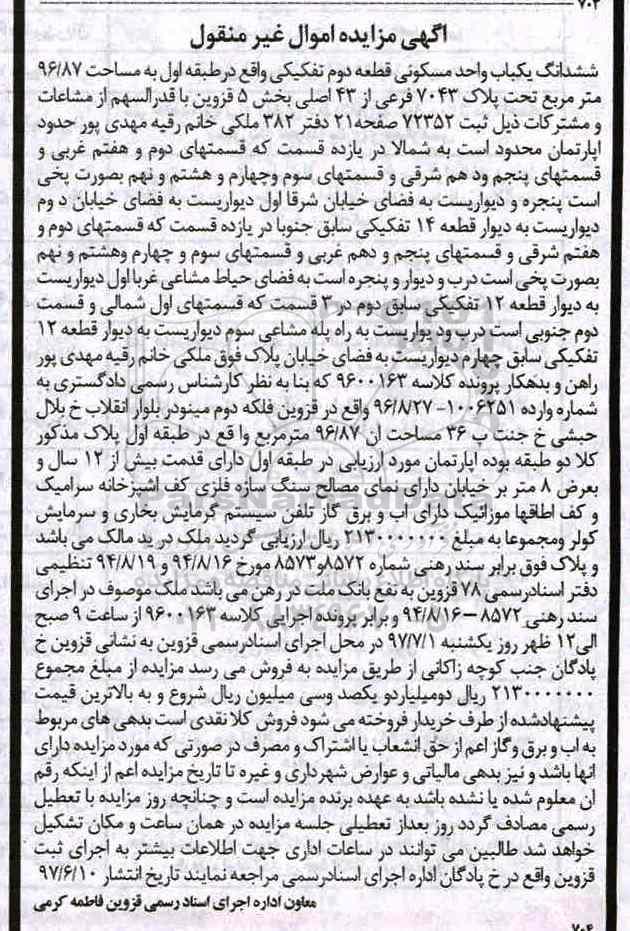 ۷۰۳
آگهی مزایده اموال غیر منقول
ششدانگ یکباب واحد مسکونی قطعه دوم تفکیکی واقع درطبقه اول به مساحت ۹۶/۸۷
متر مربع تحت پلاک ۷۰۴۳ فرعی از ۴۳ اصلی بخش ۵ قزوین با قدرالسهم از مشاعات
و مشترکات ذیل ثبت ۷۲۳۵۲ صفحه۲۱ دفتر ۳۸۲ ملکی خانم رقیه مهدی پور حدود
اپارتمان محدود است به شمالا در یازده قسمت که قسمتهای دوم و هفتم غربی و
قسمتهای پنجم ود هم شرقی و قسمتهای سوم وچهارم و هشتم و نهم بصورت پخی
است پنجره و دیواریست به فضای خیابان شرقا اول دیواریست به فضای خیابان د وم
دیواریست به دیوار قطعه ۱۴ تفکیکی سابق جنوبا در یازده قسمت که قسمتهای دوم و
هفتم شرقی و قسمتهای پنجم و دهم غربی و قسمتهای سوم و چهارم وهشتم و نهم
بصورت پخی است درب و دیوار و پنجره است به فضای حیاط مشاعی غربا اول دیواریست
به دیوار قطعه ۱۲ تفکیکی سابق دوم در ۳ قسمت که قسمتهای اول شمالی و قسمت
دوم جنوبی است درب ود یواریست به راه پله مشاعی سوم دیواریست به دیوار قطعه ۱۲
تفکیکی سابق چهارم دیواریست به فضای خیابان پلاک فوق ملکی خانم رقیه مهدی پور
راهن و بدهکار پرونده کلاسه ۹۶۰۰۱۶۳ که بنا به نظر کارشناس رسمی دادگستری به
شماره وارده ۱۰۰۶۲۵۱-۹۶/۸/۲۷ واقع در قزوین فلکه دوم مینودر بلوار انقلاب خ بلال
حبشی خ جنت پ ۳۶ مساحت ان ۹۶/۸۷ مترمربع وا قع در طبقه اول پلاک مذکور
کلا دو طبقه بوده اپارتمان مورد ارزیابی در طبقه اول دارای قدمت بیش از ۱۲ سال و
بعرض ۸ متر بر خیابان دارای نمای مصالح سنگ سازه فلزی کف اشپزخانه سرامیک
و کف اطاقها موزائیک دارای اب و برق گاز تلفن سیستم گرمایش بخاری و سرمایش
کولر ومجموعا به مبلغ ۲۱۳۰۰۰۰۰۰۰ ریال ارزیابی گردید ملک در ید مالک می باشد
و پلاک فوق برابر سند رهنی شماره ۸۵۷۲و۸۵۷۳ مورخ ۹۴/۸/۱۶ و ۹۴/۸/۱۹ تنظیمی
دفتر اسنادرسمی ۷۸ قزوین به نفع بانک ملت در رهن می باشد ملک موصوف در اجرای
سند رهنی ۸۵۷۲ –۹۴/۸/۱۶ و برابر پرونده اجرایی کلاسه ۹۶۰۰۱۶۳ از ساعت ۹ صبح
الی۱۲ ظهر روز یکشنبه ۹۷/۷/۱ در محل اجرای اسنادرسمی قزوین به نشانی قزوین خ
پادگان جنب کوچه زاکانی از طریق مزایده به فروش می رسد مزایده از مبلغ مجموع
۲۱۳۰۰۰۰۰۰۰ ریال دومیلیاردو یکصد وسی میلیون ریال شروع و به بالاترین قیمت
پیشنهادشده از طرف خریدار فروخته می شود فروش کلا نقدی است بدهی های مربوط
به اب و برق و گاز اعم از حق انشعاب یا اشتراک و مصرف در صورتی که مورد مزایده دارای
انها باشد و نیز بدهی مالیاتی و عوارض شهرداری و غیره تا تاریخ مزایده اعم از اینکه رقم
ان معلوم شده یا نشده باشد به عهده برنده مزایده است و چنانچه روز مزایده با تعطیل
رسمی مصادف گردد روز بعداز تعطیلی جلسه مزایده در همان ساعت و مکان تشکیل
خواهد شد طالبین می توانند در ساعات اداری جهت اطلاعات بیشتر به اجرای ثبت
قزوین واقع در خ پادگان اداره اجرای اسنادرسمی مراجعه نمایند تاریخ انتشار ۹۷/۶/۱۰
معاون اداره اجرای اسناد رسمی قزوین فاطمه کرمی
۷۰۴